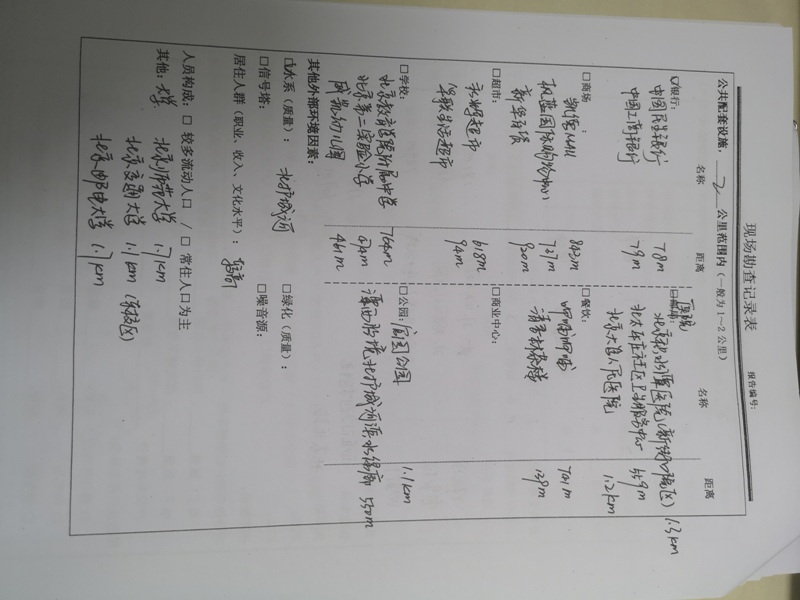 现场勘查记录表
报告编号:
公共配套设施, 2 公里范围内(一般为1~2公里)
名称 距离 名称 距离
☑银行: 医院:
中国民生银行 78m 北京积水潭医院(新街口院区) 1.3km
中国工商银行 79m 社区卫生服务中心 559m
北京大学人民医院 1.2km
□商场: □餐饮:
凯德MALL 843m 呷哺呷哺 701m
枫蓝国际购物中心 727m 139m
新华百货 920m
□超市: □商业中心:
永辉超市 618m
超市 94m
□学校: □公园:
北京教育学院附属中学 764m 官园公园 1.1km
北京第二实验小学 674m 滨水绿廊 550m
幼儿园 461m
其他外部环境因素:
☑水系(质量): 北护城河 □绿化(质量):
□信号塔: □噪音源:
居住人群(职业、收入、文化水平): 较高
人员构成: □ 较多流动人口 / □ 常住人口为主
其他: 大学 北京师范大学 1.7km
北京交通大学 1.1km (东校区)
北京邮电大学 1.7km